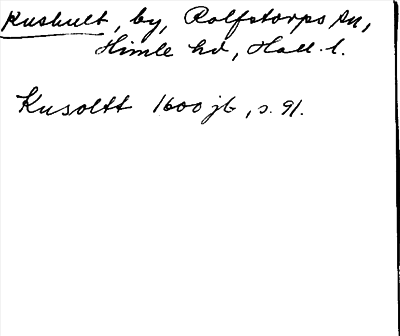 Kushult, by, Rolfstorps sn,
Himle hd, Hall. l.
Kusoltt 1600 jb, s. 91.